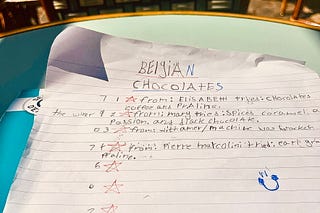 BElgiAN
CHOCOLATES
7 1 from: ElisABETH tries: chocolates
coffee and PrAline.
the winner 9 2 from: mary tries: spices caramel a
Passion. and black chocolate.
0 3 from: wittamer/machine was brocken
7 4 from: Pierre marcolini tried: earl gr
Praline.
6
0